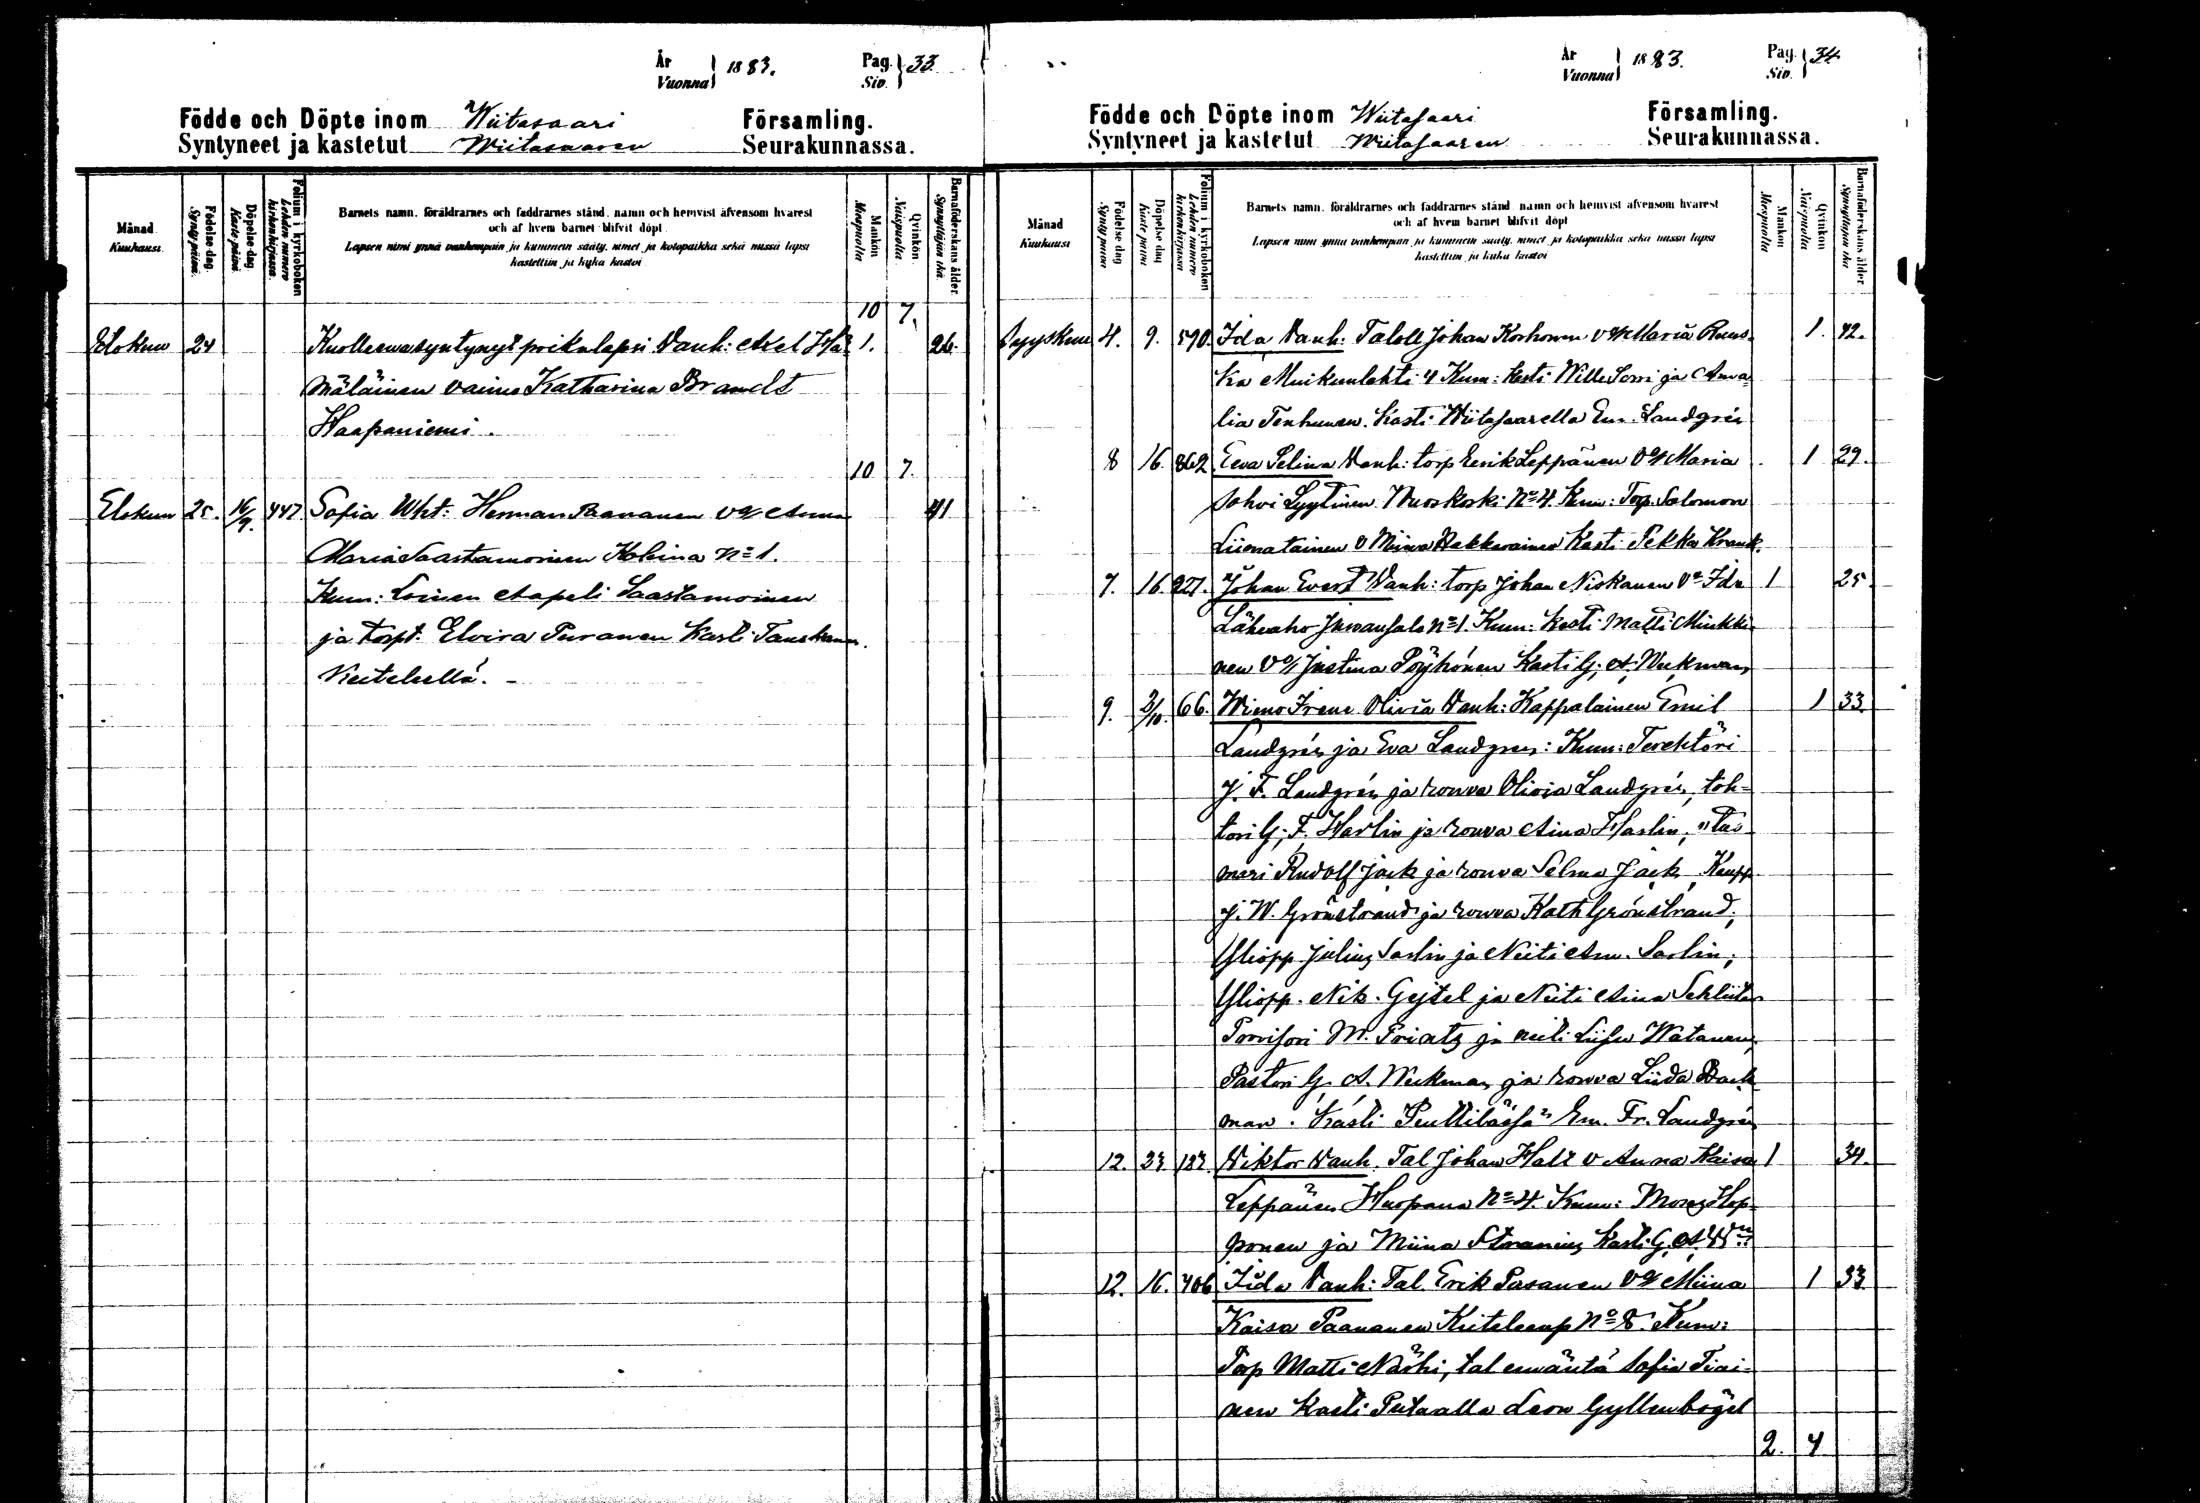 År Vuonna 1883. Pag. Siv. 33
Födde och Döpte inom Wiitasaari Församling.
Syntyneet ja kastetut Wiitasaaren Seurakunnassa.
Månad Kuukausi
Födelse-dag. Synty-päivä.
Döpelse-dag Kaste-päivä.
Folium i kyrkoboken Lehden numero kirkonkirjassa.
Barnets namn, föräldrarnes och faddrarnes stånd, namn och hemvist äfvensom hvarest
och af hvem barnet blifvit döpt
Lapsen nimi ynnä vanhempain ja kummein sääty, nimet ja kotopaikka sekä missä lapsi
kastettiin ja kuka kastoi
Mankön Miespuolta
Qvinkön Naispuolta
Barnaföderskans ålder. Synnyttäjän ikä.
10 7.
Elokuu 24 Kuolleena syntynyt poikalapsi Vanh: Axel Hä- 1. 26.
mäläinen vaimo Katharina Brandt
Haapaniemi.
10 7.
Elokuu 25. 16/9. 447 Sofia Wht: Herman Paananen Vo Anna 41
Maria Saastamoinen Kolima No 1.
Kum: Loinen Aapeli Saastamoinen
ja torpt. Elvira Puranen Kasti Tauskanen
Keiteleellä. –
År Vuonna 1883. Pag. Siv. 34
Födde och Döpte inom Wiitasaari Församling.
Syntyneet ja kastetut Wiitasaaren Seurakunnassa.
Månad Kuukausi
Födelse-dag Synty-päivä
Döpelse-dag Kaste-päivä
Folium i kyrkoboken Lehden numero kirkonkirjassa
Barnets namn, föräldrarnes och faddrarnes stånd, namn och hemvist äfvensom hvarest
och af hvem barnet blifvit döpt
Lapsen nimi ynnä vanhempain ja kummein sääty, nimet ja kotopaikka sekä missä lapsi
kastettiin ja kuka kastoi
Mankön Miespuolta
Qvinkön Naispuolta
Barnaföderskans ålder. Synnyttäjän ikä
Syyskuu 4. 9. 590. Ida Vanh: Taloll Johan Korhonen Vo Maria Ruus- 1. 42.
ka Muikunlahti 4 Kum: Kesti Wille Sorri ja Ama-
lia Tenhunen. Kasti Wiitasaarella Em. Landgrén
8 16. 862 Eeva Selina Vanh: torp Eerik Leppänen Vo Maria 1 29.
Sohvi Lyytinen Wuoskoski No 4. Kum: Torp. Salomon
Liimatainen v Miina Hakkarainen Kasti Pekka Krank.
7. 16. 227. Johan Evert Vanh: torp Johan Niskanen Vo Ida 1 25.
Läheaho Jurvansalo No 1. Kum: Kesti Matti Minkki-
nen Vo Justina Pöyhönen Kasti G. A. Weckman
9. 2/10. 66. Wieno Irene Olivia Vanh: Kappalainen Emil 1 33.
Landgrén ja Eva Landgren: Kum: Terehtöri
J. F. Landgrén ja rouva Olivia Landgrén, toh-
tori G. F. Harlin ja rouva Aina Harlin,
Rudolf Jack ja rouva Selma Jack, Kaupp
J. W. Grönstrand ja rouva Kath Grönstrand;
Yliopp Julius Sarlin ja Neiti Ann. Sarlin;
Yliopp. Nik. Gejtel ja Neiti Aina Schlüter
Provisori M. Priatz ja neiti Liisa Watanen,
Pastori G. A. Weckman ja rouva Liida Back-
man. Kasti Penttilässä Em. Fr. Landgrén
12. 23. 183. Wiktor Vanh. Tal Johan Halt v Anna Kaisa 1 34.
Leppänen Huopana No 4. Kum: Hop-
ponen ja Miina Stranius Kasti G. A. Wn
12. 16. 406 Iida Vanh: Tal. Erik Pasanen Vo Miina 1 33.
Kaisa Paananen Keiteleenp No 8. Kum:
Torp Matti Närhi, tal emäntä Sofia Tiai-
nen Kasti Putaalla Leon Gyllenbögel
2. 4